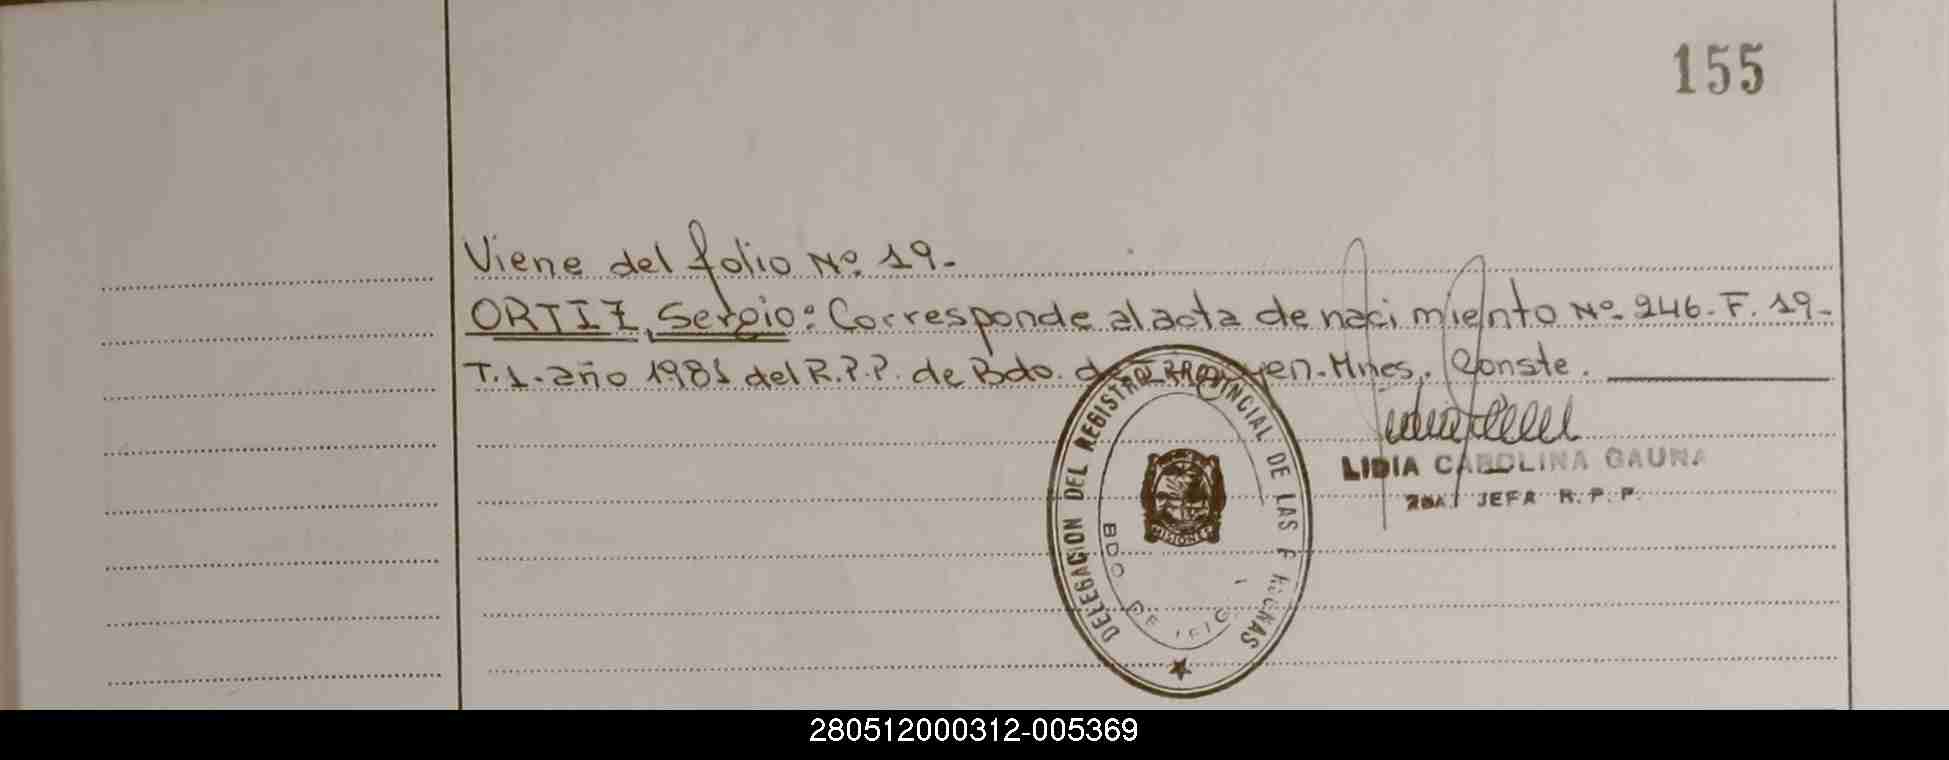 155
Viene del folio Nº. 19.-
ORTIZ, Sergio: Corresponde al acta de nacimiento Nº. 246. F. 19-
T. 1. año 1981 del R.P.P. de Bdo. de Irigoyen. Mnes. Conste.
LIDIA CAROLINA GAUNA
2DA. JEFA R.P.P.
DELEGACION DEL REGISTRO PROVINCIAL DE LAS PERSONAS
BDO. DE
MISIONES
280512000312-005369